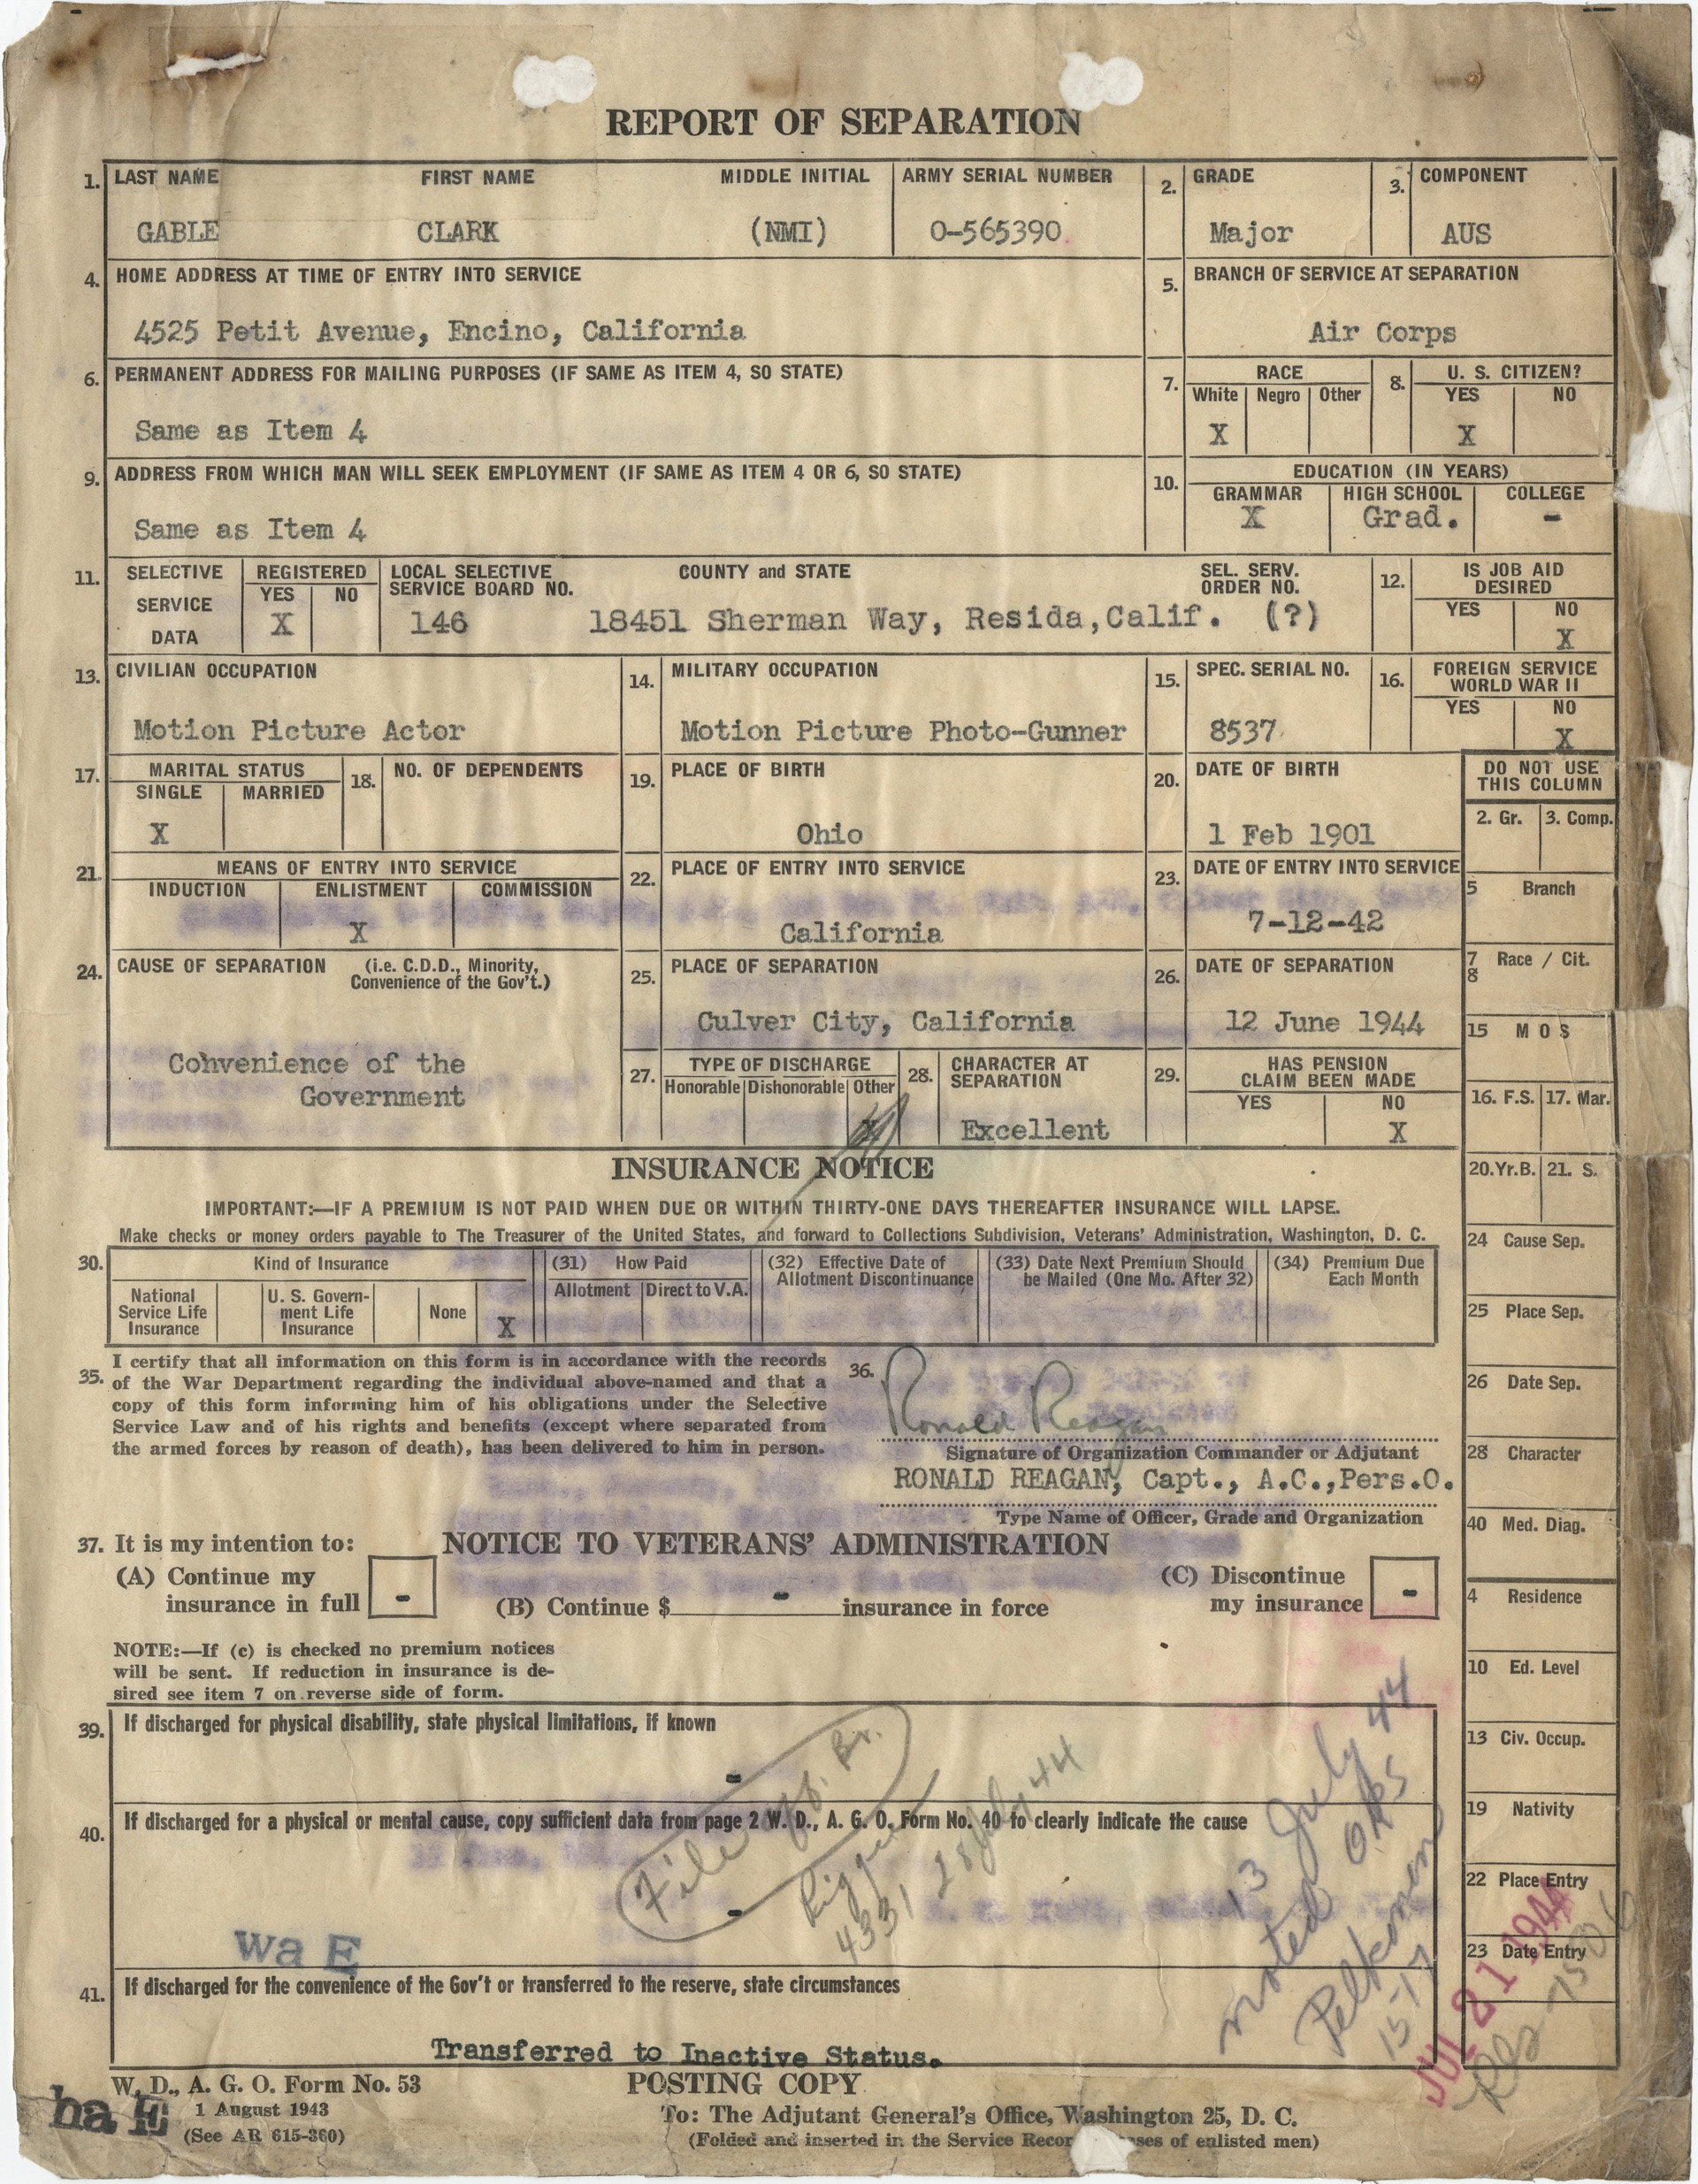 REPORT OF SEPARATION
1. LAST NAME FIRST NAME MIDDLE INITIAL ARMY SERIAL NUMBER 2. GRADE 3. COMPONENT
GABLE CLARK (NMI) O-565390 Major AUS
4. HOME ADDRESS AT TIME OF ENTRY INTO SERVICE 5. BRANCH OF SERVICE AT SEPARATION
4525 Petit Avenue, Encino, California Air Corps
6. PERMANENT ADDRESS FOR MAILING PURPOSES (IF SAME AS ITEM 4, SO STATE) 7. RACE 8. U. S. CITIZEN?
White Negro Other YES NO
Same as Item 4 X X
9. ADDRESS FROM WHICH MAN WILL SEEK EMPLOYMENT (IF SAME AS ITEM 4 OR 6, SO STATE) 10. EDUCATION (IN YEARS)
GRAMMAR HIGH SCHOOL COLLEGE
Same as Item 4 X Grad. -
11. SELECTIVE SERVICE DATA REGISTERED LOCAL SELECTIVE SERVICE BOARD NO. COUNTY and STATE SEL. SERV. ORDER NO. 12. IS JOB AID DESIRED
YES NO YES NO
X 146 18451 Sherman Way, Resida,Calif. (?) X
13. CIVILIAN OCCUPATION 14. MILITARY OCCUPATION 15. SPEC. SERIAL NO. 16. FOREIGN SERVICE WORLD WAR II
YES NO
Motion Picture Actor Motion Picture Photo-Gunner 8537 X
17. MARITAL STATUS 18. NO. OF DEPENDENTS 19. PLACE OF BIRTH 20. DATE OF BIRTH
SINGLE MARRIED
X Ohio 1 Feb 1901
21. MEANS OF ENTRY INTO SERVICE 22. PLACE OF ENTRY INTO SERVICE 23. DATE OF ENTRY INTO SERVICE
INDUCTION ENLISTMENT COMMISSION
X California 7-12-42
24. CAUSE OF SEPARATION (i.e. C.D.D., Minority, Convenience of the Gov't.) 25. PLACE OF SEPARATION 26. DATE OF SEPARATION
Culver City, California 12 June 1944
Convenience of the
Government
27. TYPE OF DISCHARGE 28. CHARACTER AT SEPARATION 29. HAS PENSION CLAIM BEEN MADE
Honorable Dishonorable Other YES NO
X Excellent X
INSURANCE NOTICE
IMPORTANT:—IF A PREMIUM IS NOT PAID WHEN DUE OR WITHIN THIRTY-ONE DAYS THEREAFTER INSURANCE WILL LAPSE.
Make checks or money orders payable to The Treasurer of the United States, and forward to Collections Subdivision, Veterans' Administration, Washington, D. C.
30. Kind of Insurance (31) How Paid (32) Effective Date of Allotment Discontinuance (33) Date Next Premium Should be Mailed (One Mo. After 32) (34) Premium Due Each Month
National Service Life Insurance U. S. Govern-ment Life Insurance None X Allotment Direct to V.A.
35. I certify that all information on this form is in accordance with the records
of the War Department regarding the individual above-named and that a
copy of this form informing him of his obligations under the Selective
Service Law and of his rights and benefits (except where separated from
the armed forces by reason of death), has been delivered to him in person.
36. Ronald Reagan
Signature of Organization Commander or Adjutant
RONALD REAGAN, Capt., A.C.,Pers.O.
Type Name of Officer, Grade and Organization
37. It is my intention to: NOTICE TO VETERANS' ADMINISTRATION
(A) Continue my insurance in full -
(B) Continue $ - insurance in force
(C) Discontinue my insurance -
NOTE:—If (c) is checked no premium notices
will be sent. If reduction in insurance is de-
sired see item 7 on reverse side of form.
39. If discharged for physical disability, state physical limitations, if known
-
40. If discharged for a physical or mental cause, copy sufficient data from page 2 W. D., A. G. O. Form No. 40 to clearly indicate the cause
-
File Off. Br.
4331 28 July 44
13 July 44
noted ORS
Pelkonen
15-17
wa E
41. If discharged for the convenience of the Gov't or transferred to the reserve, state circumstances
Transferred to Inactive Status.
DO NOT USE THIS COLUMN
2. Gr. 3. Comp.
5 Branch
7 8 Race / Cit.
15 M O S
16. F.S. 17. Mar.
20.Yr.B. 21. S.
24 Cause Sep.
25 Place Sep.
26 Date Sep.
28 Character
40 Med. Diag.
4 Residence
10 Ed. Level
13 Civ. Occup.
19 Nativity
22 Place Entry
23 Date Entry
JUL 21 1944
W. D., A. G. O. Form No. 53
1 August 1943
(See AR 615-360)
ba E
POSTING COPY
To: The Adjutant General's Office, Washington 25, D. C.
(Folded and inserted in the Service Recor ses of enlisted men)